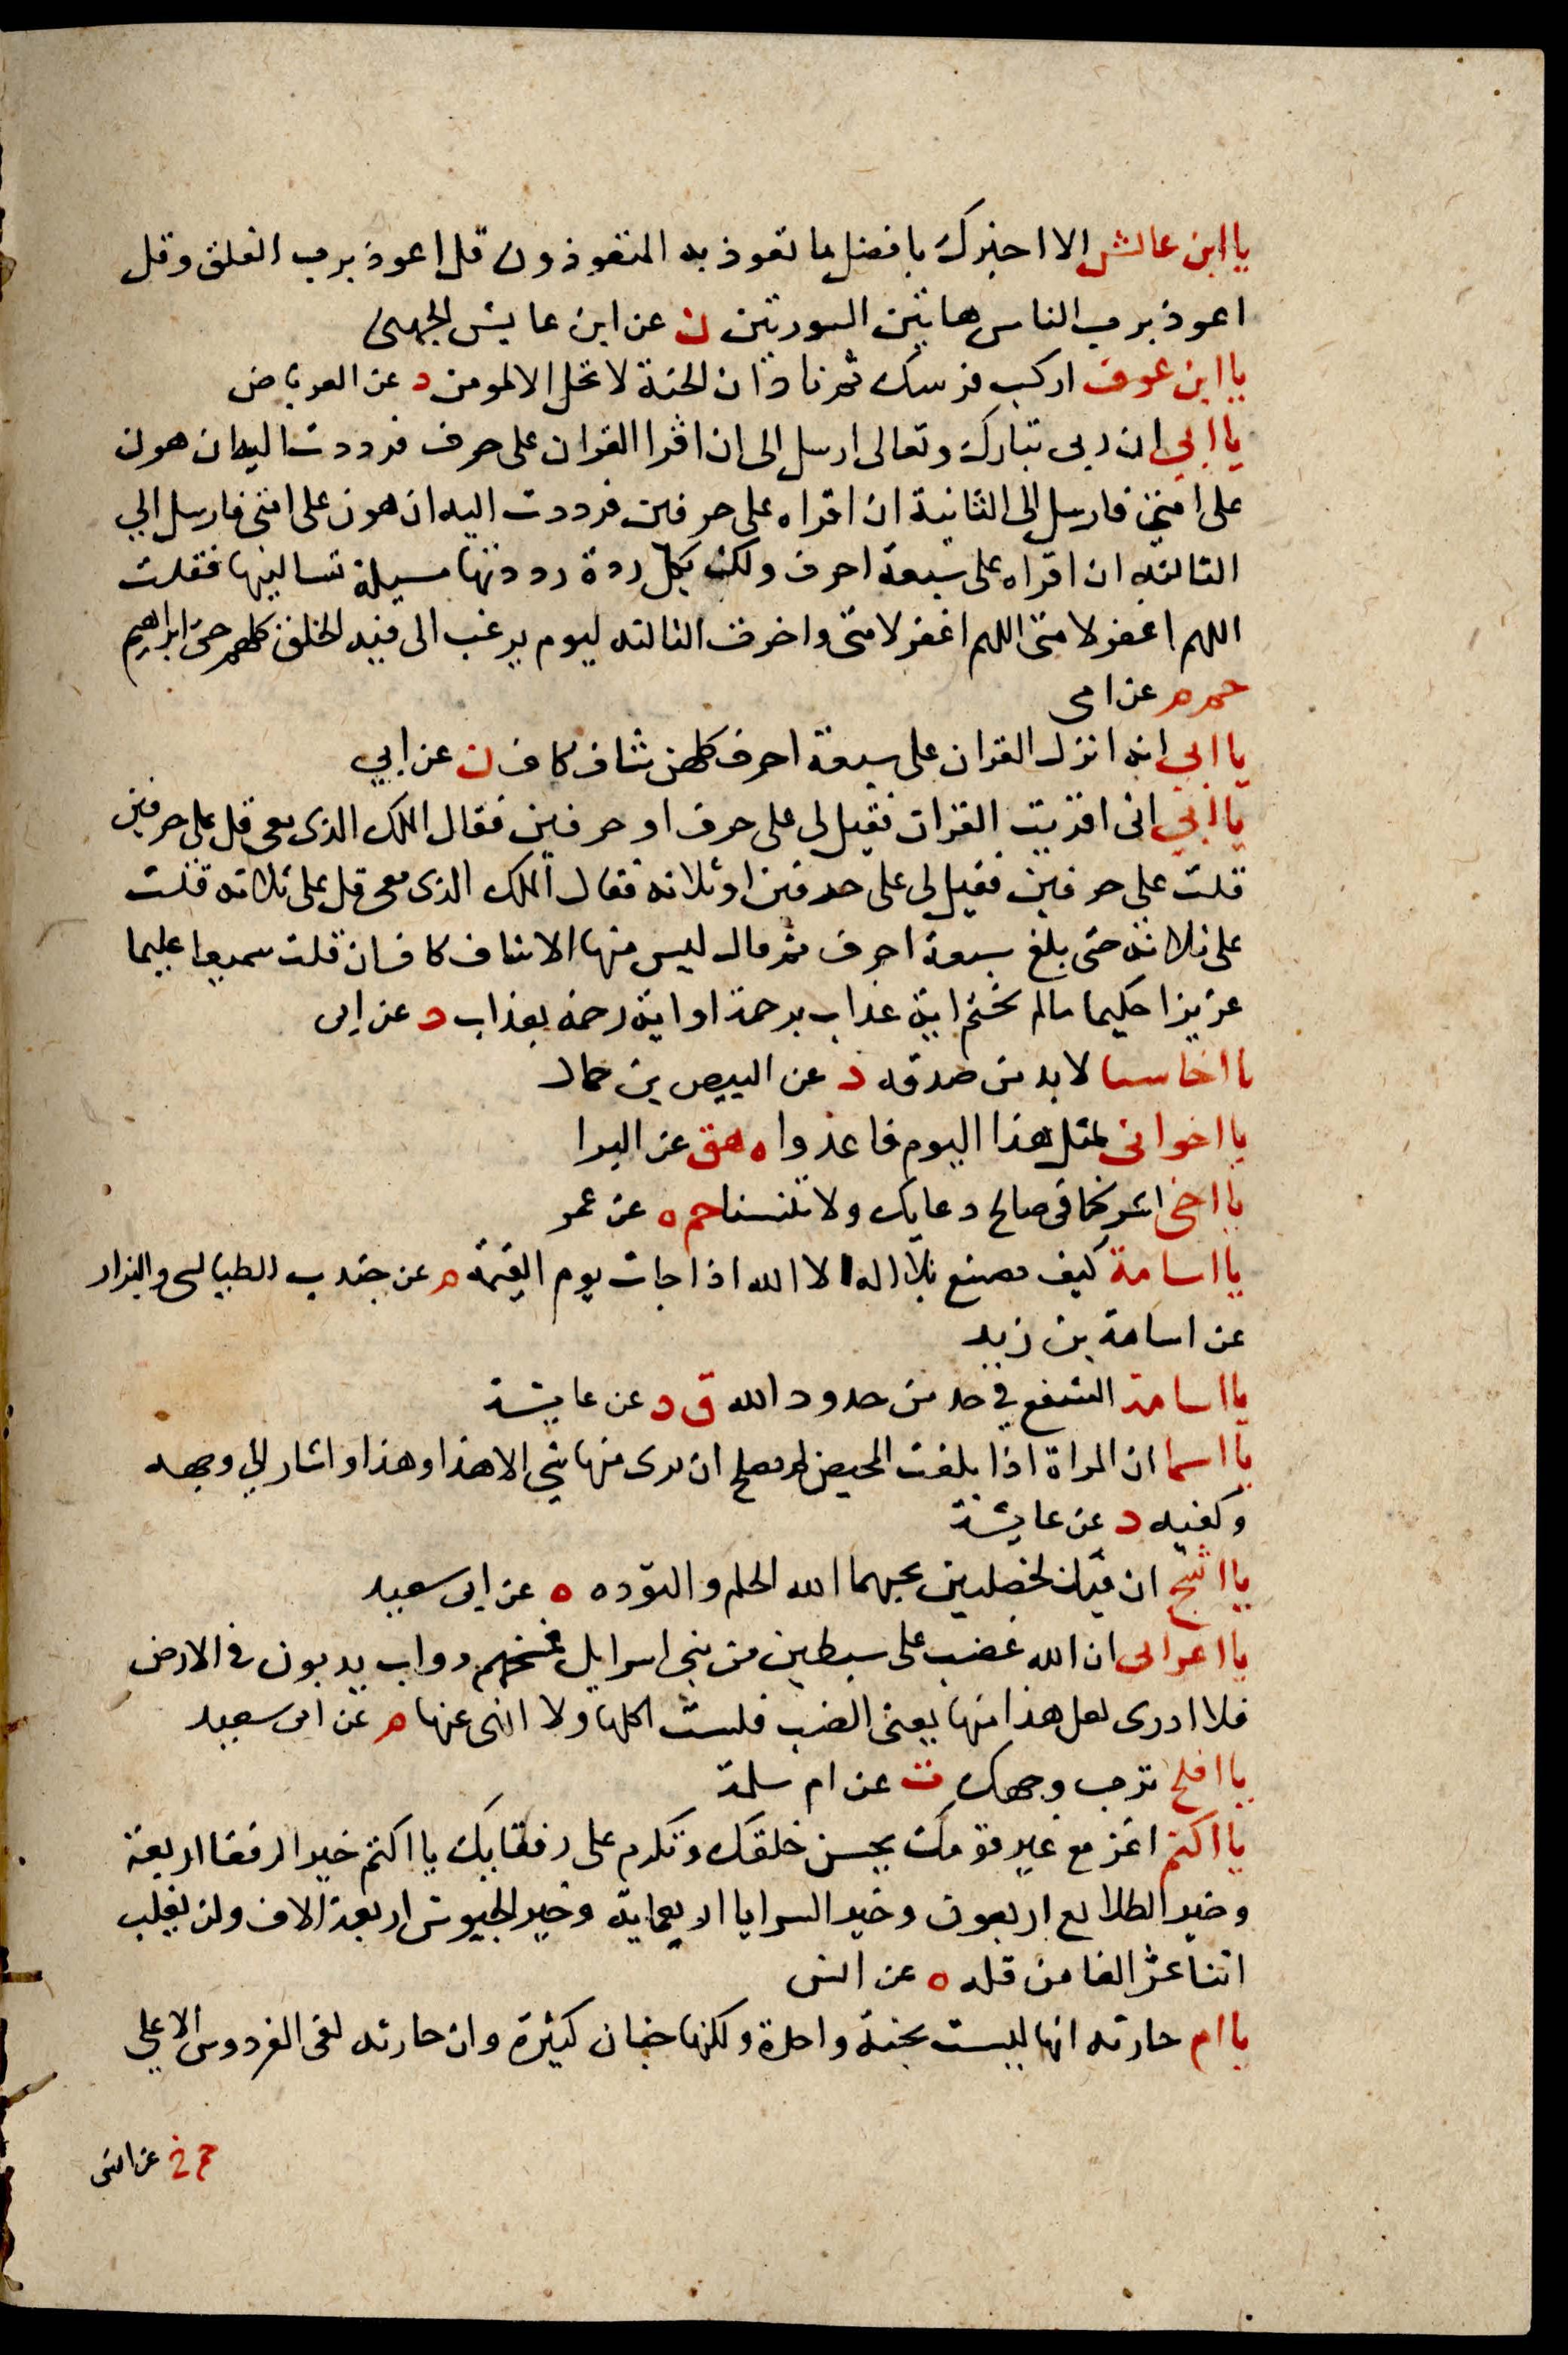 يا ابن عائش الا اخبرك بافضل ما تعوذ به المتعوذون قل اعوذ برب الفلق وقل
اعوذ برب الناس هاتين السورتين ن عن ابن عايش الجهنى
يا ابن عوف اركب فرسك ثم ناد ان الجنة لا تحل الا لمومن د عن العرباض
يا ابي ان ربى تبارك وتعالى ارسل الى ان اقرا القران على حرف فرددت اليه ان هون
على امتي فارسل الى الثانية ان اقراه على حرفين فرددت اليه ان هون على امتى فارسل الي
الثالثه ان اقراه على سبعة احرف ولك بكل ردة رددتها مسيلة تسالنيها فقلت
اللهم اغفر لامتى اللهم اغفر لامتى واخرت الثالثه ليوم يرغب الى فيه الخلق كلهم حتى ابراهيم
حم م عن ابى
يا ابي انه انزل القران على سبعة احرف كلهن شاف كاف ن عن ابي
يا ابي انى اقريت القران فقيل لى على حرف او حرفين فقال الملك الذى معى قل على حرفين
قلت على حرفين فقيل لى على حرفين او ثلاثه فقال الملك الذى معى قل على ثلاثه قلت
على ثلاثه حتى بلغ سبعة احرف ثم قال ليس منها الا شاف كاف ان قلت سميعا عليما
عزيزا حكيما مالم تختم اية عذاب برحمة او اية رحمة بعذاب د عن ابى
يا اخا سبا لا بد من صدقه د عن ابيض بن حمال
يا اخوانى لمثل هذا اليوم فاعدوا ه هق عن البرا
يا اخى اشركنا فى صالح دعايك ولا تنسنا حم ه عن عمر
يا اسامة كيف تصنع بلا اله الا الله اذا جات يوم القيمة م عن جندب الطيالسى والبزار
عن اسامة بن زيد
يا اسامة اتشفع في حد من حدود الله ق د عن عايشة
يا اسما ان المراة اذا بلغت المحيض لم تصلح ان يرى منها شي الا هذا وهذا واشار الي وجهه
وكفيه د عن عايشة
يا اشج ان فيك لخصلتين يحبهما الله الحلم والتؤده ه عن ابى سعيد
يا اعرابى ان الله غضب على سبطين من بنى اسرايل فمسخهم دواب يدبون فى الارض
فلا ادرى لعل هذا منها يعنى الضب فلست اكلها ولا انهى عنها م عن ابى سعيد
يا افلح ترب وجهك ت عن ام سلمة
يا اكثم اغز مع غير قومك يحسن خلقك وتكرم على رفقايك يا اكثم خير الرفقا اربعة
وخير الطلايع اربعون وخير السرايا اربعماية وخير الجيوش اربعة الاف ولن يغلب
اثنا عشر الفا من قله ه عن انس
يا ام حارثه انها ليست بجنة واحدة ولكنها جنان كثيرة وان حارثه لفى الفردوس الاعلى
حم خ عن انس